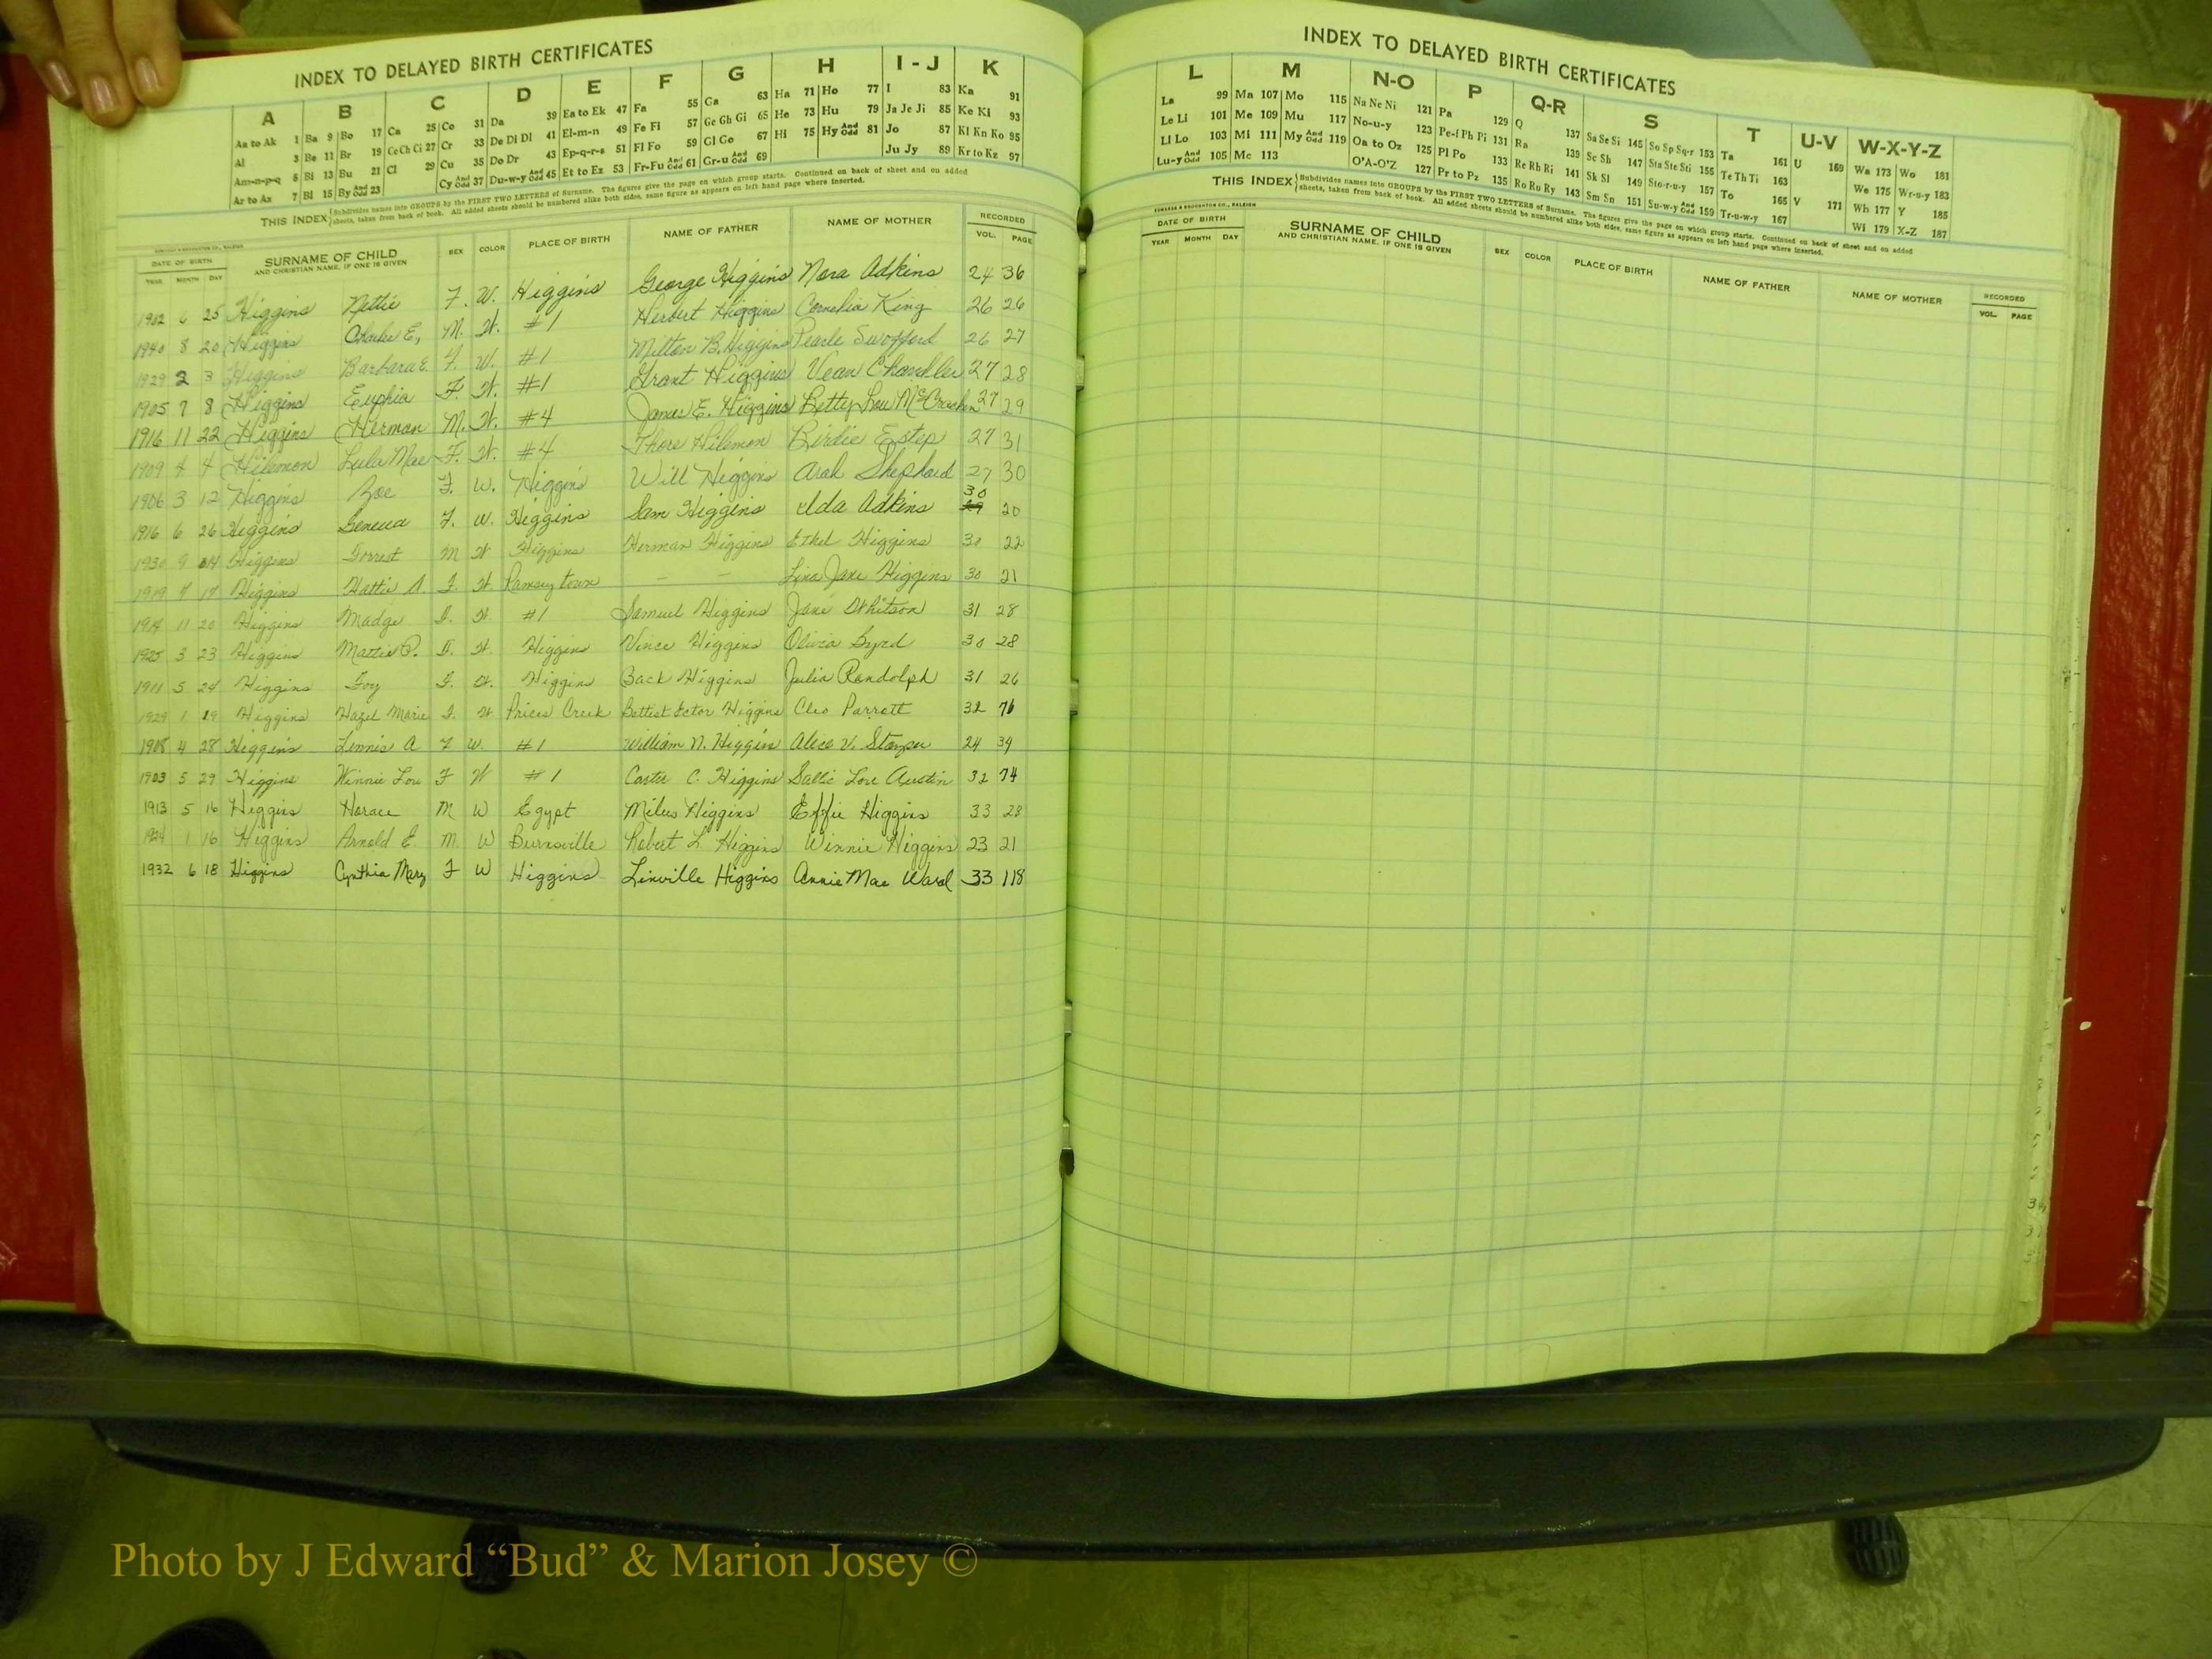 INDEX TO DELAYED BIRTH CERTIFICATES
A B C D E F G H I - J K
Aa to Ak 1 Ba 9 Bo 17 Ca 25 Co 31 Da 39 Ea to Ek 47 Fa 55 Ga 63 Ha 71 Ho 77 I 83 Ka 91
Al 3 Be 11 Br 19 Ce Ch Ci 27 Cr 33 De Di Dl 41 El-m-n 49 Fe Fi 57 Ge Gh Gi 65 He 73 Hu 79 Ja Je Ji 85 Ke Ki 93
Am-n-p-q 5 Bi 13 Bu 21 Cl 29 Cu 35 Do Dr 43 Ep-q-r-s 51 Fl Fo 59 Gl Go 67 Hi 75 Hy And Odd 81 Jo 87 Kl Kn Ko 95
Ar to Az 7 Bl 15 By And Odd 23 Cy And Odd 37 Du-w-y And Odd 45 Et to Ez 53 Fr-Fu And Odd 61 Gr-u And Odd 69 Ju Jy 89 Kr to Kz 97
THIS INDEX Subdivides names into GROUPS by the FIRST TWO LETTERS of Surname. The figures give the page on which group starts. Continued on back of sheet and on added
sheets, taken from back of book. All added sheets should be numbered alike both sides, same figure as appears on left hand page where inserted.
EDWARDS & BROUGHTON CO., RALEIGH
DATE OF BIRTH SURNAME OF CHILD SEX COLOR PLACE OF BIRTH NAME OF FATHER NAME OF MOTHER RECORDED
YEAR MONTH DAY AND CHRISTIAN NAME, IF ONE IS GIVEN VOL. PAGE
1902 6 25 Higgins Nettie F. W. Higgins George Higgins Nora Adkins 24 36
1940 8 20 Higgins Charlie E. M. W. #1 Herbert Higgins Cornelia King 26 26
1929 2 3 Higgins Barbara E. F. W. #1 Milton B. Higgins Pearle Swofford 26 27
1905 7 8 Higgins Euphia F. W. #1 Grant Higgins Vean Chandler 27 28
1916 11 22 Higgins Herman M. W. #4 James E. Higgins Betty Lou McCracken 27 29
1909 4 4 Hilemon Lula Mae F. W. #4 Thore Hilemon Birdie Estep 27 31
1906 3 12 Higgins Zoe F. W. Higgins Will Higgins Arah Shephard 27 30
1916 6 26 Higgins Geneva F. W. Higgins Sam Higgins Ida Adkins 30 20
1930 9 Higgins Forrest M W Higgins Herman Higgins Ethel Higgins 30 22
1919 7 17 Higgins Hattie A. F. W Ramseytown — — Lina Jane Higgins 30 21
1914 11 20 Higgins Madge F. W. #1 Samuel Higgins Jane Whitson 31 28
1925 3 23 Higgins Mattie P. F. W. Higgins Vince Higgins Olivia Byrd 30 28
1911 5 24 Higgins F. W. Higgins Zack Higgins Julia Randolph 31 26
1929 1 19 Higgins Hazel Marie F. W Prices Creek Battist Ector Higgins Cleo Parrott 32 76
1908 4 28 Higgins Linnis A F W. #1 William N. Higgins Alice V. Stamper 24 39
1903 5 29 Higgins Winnie Lou F W #1 Carter C. Higgins Sallie Lou Austin 32 74
1913 5 16 Higgins Horace M W Egypt Milus Higgins Effie Higgins 33 28
1924 1 16 Higgins Arnold E. M. W Burnsville Robert L Higgins Winnie Higgins 23 21
1932 6 18 Higgins Cynthia Mary F W Higgins Linville Higgins Annie Mae Ward 33 118
INDEX TO DELAYED BIRTH CERTIFICATES
L M N-O P Q-R S T U-V W-X-Y-Z
La 99 Ma 107 Mo 115 Na Ne Ni 121 Pa 129 Q 137 Sa Se Si 145 So Sp Sq-r 153 Ta 161 U 169 Wa 173 Wo 181
Le Li 101 Me 109 Mu 117 No-u-y 123 Pe-f Ph Pi 131 Ra 139 Sc Sh 147 Sta Ste Sti 155 Te Th Ti 163 We 175 Wr-u-y 183
Ll Lo 103 Mi 111 My And Odd 119 Oa to Oz 125 Pl Po 133 Re Rh Ri 141 Sk Sl 149 Sto-r-u-y 157 To 165 V 171 Wh 177 Y 185
Lu-y And Odd 105 Mc 113 O'A-O'Z 127 Pr to Pz 135 Ro Ru Ry 143 Sm Sn 151 Su-w-y And Odd 159 Tr-u-w-y 167 Wi 179 X-Z 187
THIS INDEX Subdivides names into GROUPS by the FIRST TWO LETTERS of Surname. The figures give the page on which group starts. Continued on back of sheet and on added
sheets, taken from back of book. All added sheets should be numbered alike both sides, same figure as appears on left hand page where inserted.
EDWARDS & BROUGHTON CO., RALEIGH
DATE OF BIRTH SURNAME OF CHILD SEX COLOR PLACE OF BIRTH NAME OF FATHER NAME OF MOTHER RECORDED
YEAR MONTH DAY AND CHRISTIAN NAME, IF ONE IS GIVEN VOL. PAGE
Photo by J Edward “Bud” & Marion Josey ©